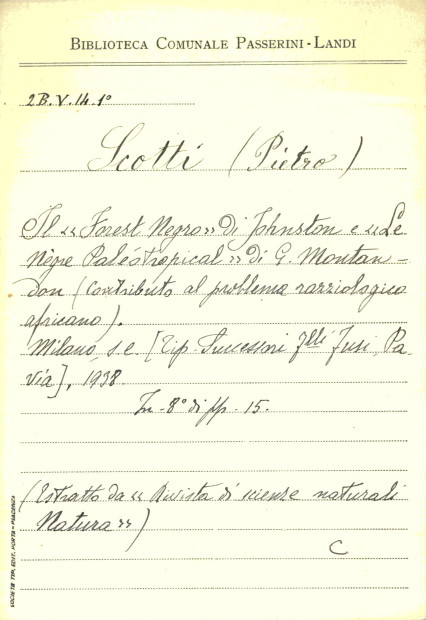 BIBLIOTECA COMUNALE PASSERINI-LANDI
2B.V.14.1°
Scotti (Pietro)
Il «Forest Negro» di Johnston e «Le
Nègre Paléotropical» di G. Montan-
don (Contributo al problema razziologico
africano).
Milano, s.e. [Tip. Successori F.lli Fusi, Pa-
via], 1938
In-8° di pp. 15.
(Estratto da «Rivista di scienze naturali
Natura»)
C
SOCIETÀ TIP. EDIT. PORTA-PIACENZA